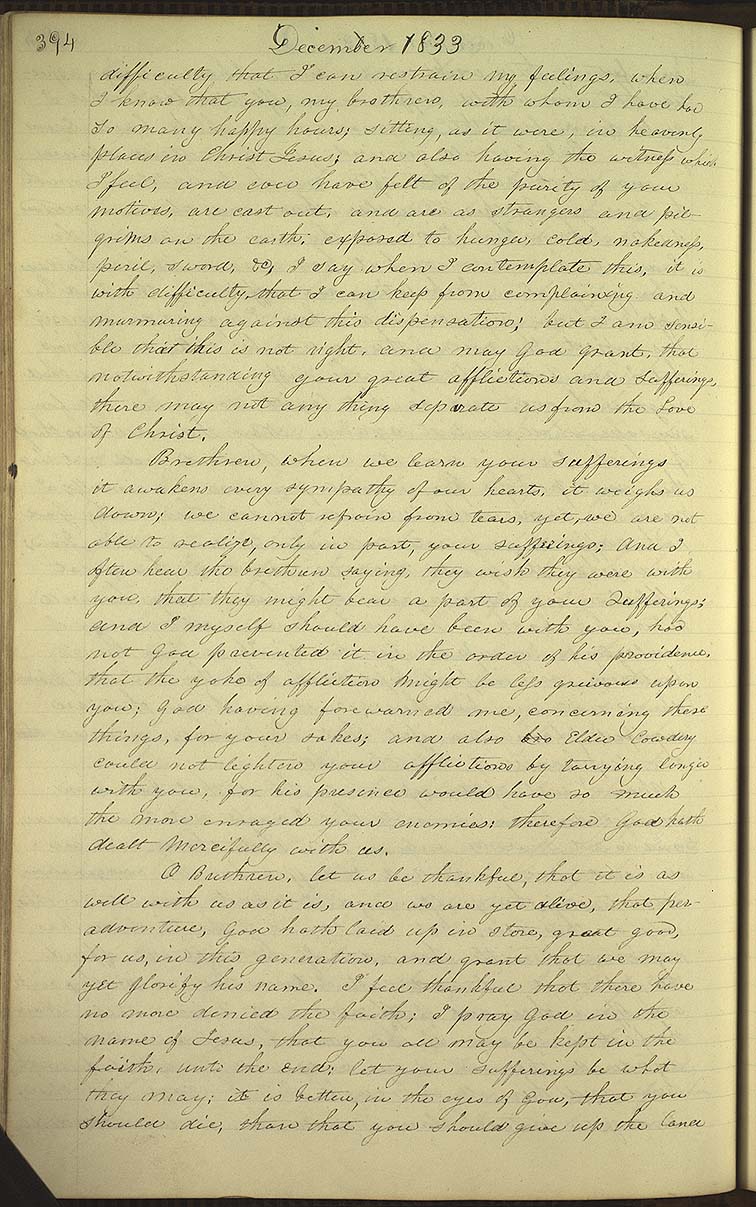 394
December 1833
difficulty that I can restrain my feelings, when
I know that you, my brethren, with whom I have had
so many happy hours; sitting, as it were, in heavenly
places in Christ Jesus; and also having the witness which
I feel, and ever have felt of the purity of your
motives, are cast out, and are as strangers and pil-
grims on the earth; exposed to hunger, cold, nakedness,
peril, sword, &c, I say when I contemplate this, it is
with difficulty that I can keep from complaining and
murmuring against this dispensation; but I am sensi-
ble that this is not right, and may God grant, that
notwithstanding your great afflictions and sufferings,
there may not any thing seperate us from the Love
of Christ.
Brethren, when we learn your sufferings
it awakens every sympathy of our hearts, it weighs us
down; we cannot refrain from tears, yet, we are not
able to realize, only in part, your sufferings; And I
often hear the brethren saying, they wish they were with
you, that they might bear a part of your sufferings;
and I myself should have been with you, had
not God prevented it in the order of his providence,
that the yoke of affliction might be less grievous upon
you; God having forewarned me, concerning these
things, for your sakes; and also Elder Cowdery
could not lighten your afflictions by tarrying longer
with you, for his presence would have so much
the more enraged your enemies: therefore God hath
dealt mercifully with us.
O Brethren, let us be thankful, that it is as
well with us as it is, and we are yet alive, that per-
adventure, God hath laid up in store, great good,
for us, in this generation, and grant that we may
yet glorify his name. I feel thankful that there have
no more denied the faith; I pray God in the
name of Jesus, that you all may be kept in the
faith, unto the end: let your sufferings be what
they may; it is better, in the eyes of God, that you
should die, than that you should give up the land